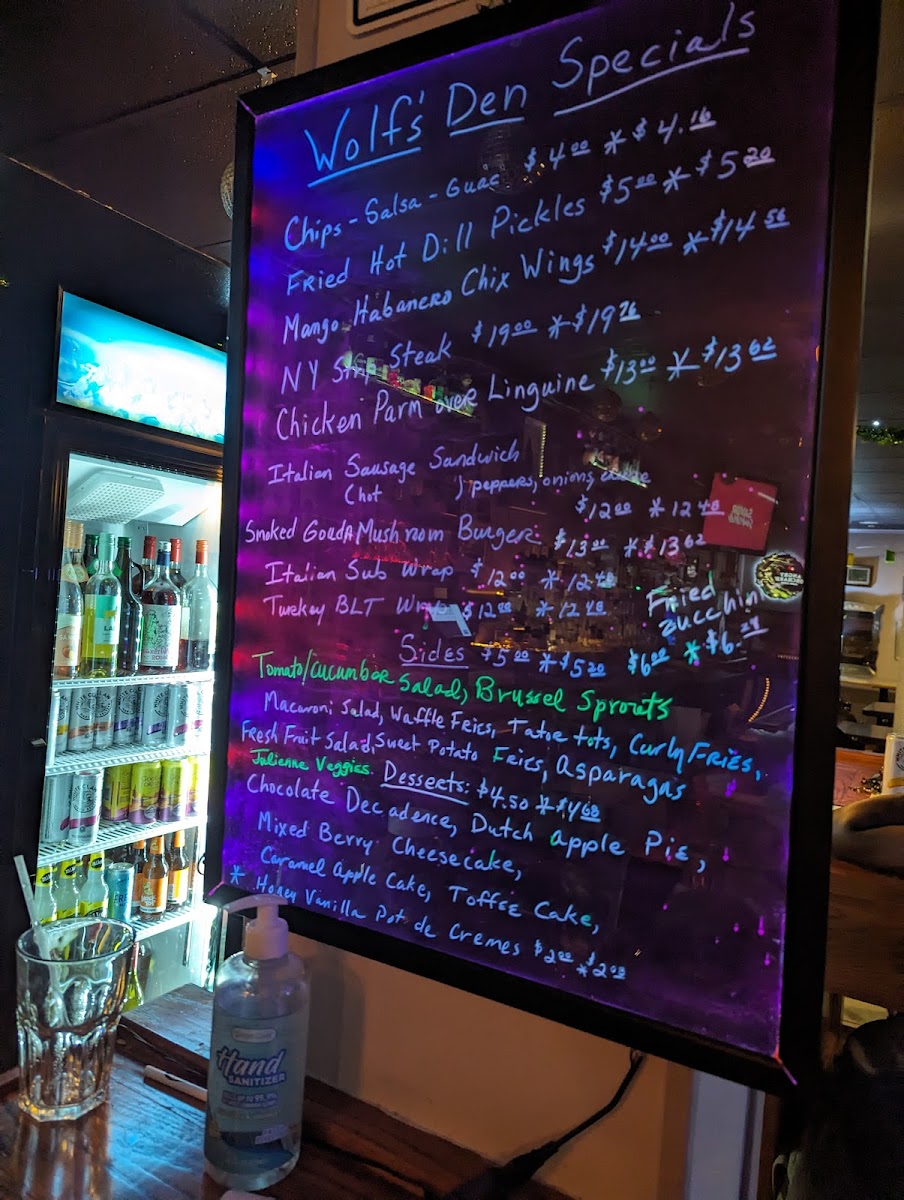 Wolf's Den Specials
Chips - Salsa - Guac $4.00 * $4.16
Fried Hot Dill Pickles $5.00 * $5.20
Mango Habanero Chix Wings $14.00 * $14.56
NY Strip Steak $19.00 * $19.76
Chicken Parm over Linguine $13.00 * $13.62
Italian Sausage Sandwich
(hot) peppers, onions,
$12.00 * 12.48
Smoked Gouda Mushroom Burger $13.00 * $13.62
Italian Sub Wrap $12.00 * 12.48
Turkey BLT Wrap $12.00 * 12.48
Fried
zucchini
$6.00 * $6.24
Sides $5.00 * $5.20
Tomato/cucumber Salad, Brussel Sprouts
Macaroni Salad, Waffle Fries, Tator tots, Curly Fries,
Fresh Fruit Salad, Sweet Potato Fries, Asparagas
Julienne Veggies.
Desserts: $4.50 * $4.68
Chocolate Decadence, Dutch apple Pie,
Mixed Berry Cheesecake,
Caramel Apple Cake, Toffee Cake,
* Honey Vanilla Pot de Cremes $2.00 * $2.08
Hand
SANITIZER